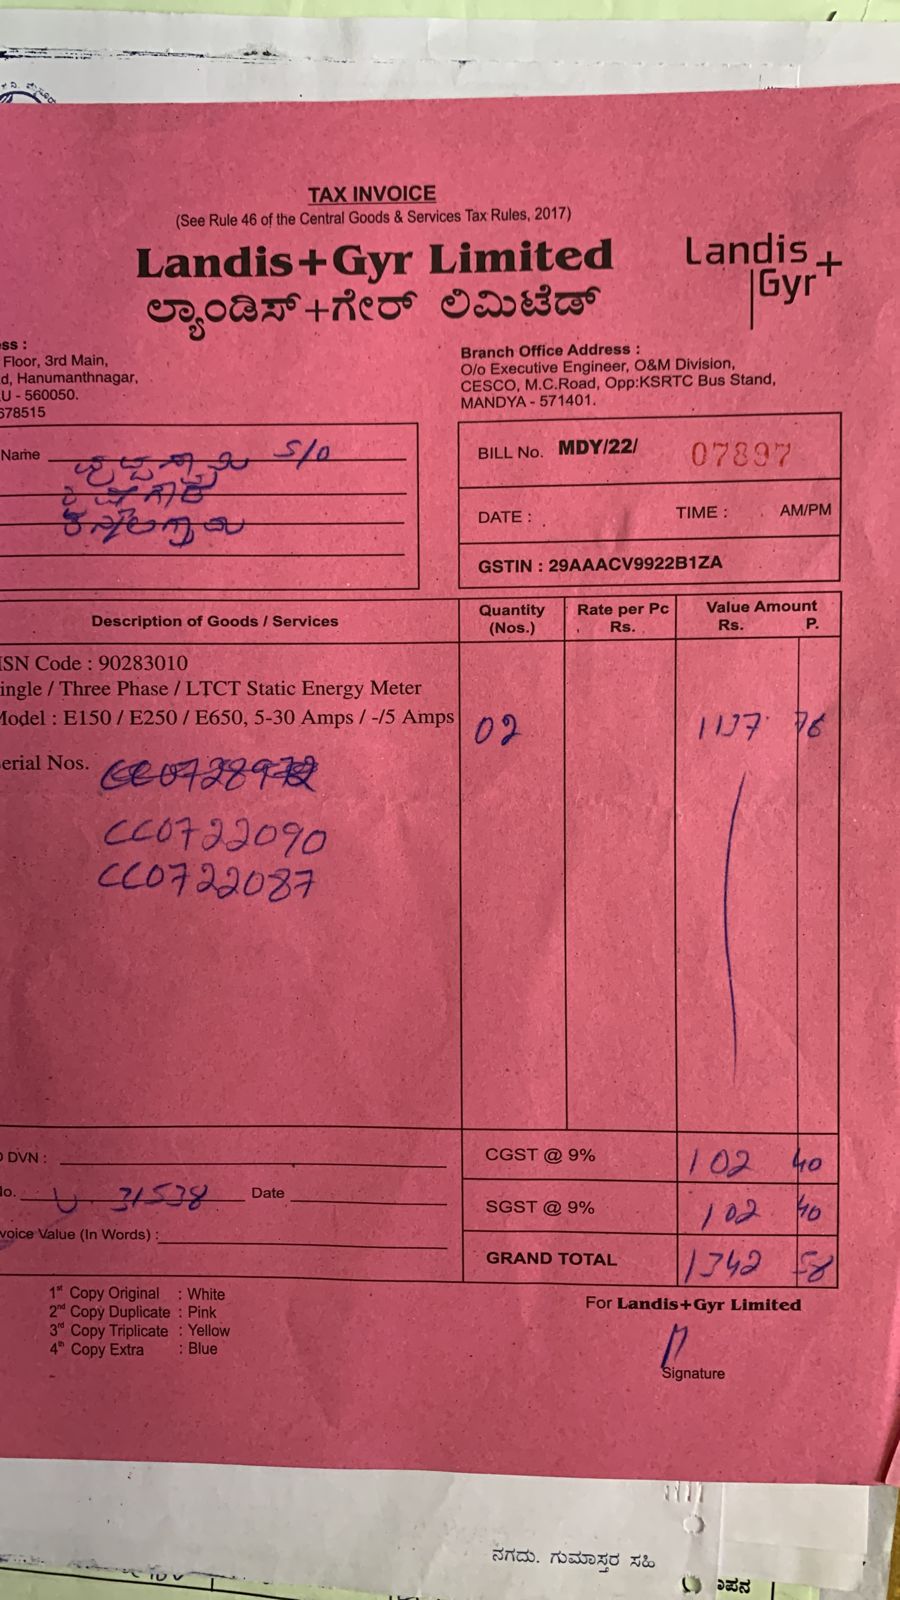 TAX INVOICE
(See Rule 46 of the Central Goods & Services Tax Rules, 2017)
Landis+Gyr Limited
Landis
Gyr+
ಲ್ಯಾಂಡಿಸ್+ಗೇರ್ ಲಿಮಿಟೆಡ್
ess :
Floor, 3rd Main,
d, Hanumanthnagar,
U - 560050.
678515
Branch Office Address :
O/o Executive Engineer, O&M Division,
CESCO, M.C.Road, Opp:KSRTC Bus Stand,
MANDYA - 571401.
Name S/O
BILL No. MDY/22/ 07897
DATE : TIME : AM/PM
GSTIN : 29AAACV9922B1ZA
Description of Goods / Services
Quantity (Nos.)
Rate per Pc Rs.
Value Amount Rs. P.
ISN Code : 90283010
ingle / Three Phase / LTCT Static Energy Meter
Model : E150 / E250 / E650, 5-30 Amps / -/5 Amps
02 1137 76
erial Nos.
CC0722090
CC0722087
DVN :
CGST @ 9% 102 40
o. 31538 Date
SGST @ 9% 102 40
voice Value (In Words) :
GRAND TOTAL 1342 58
1st Copy Original : White
2nd Copy Duplicate : Pink
3rd Copy Triplicate : Yellow
4th Copy Extra : Blue
For Landis+Gyr Limited
Signature
ನಗದು. ಗುಮಾಸ್ತರ ಸಹಿ